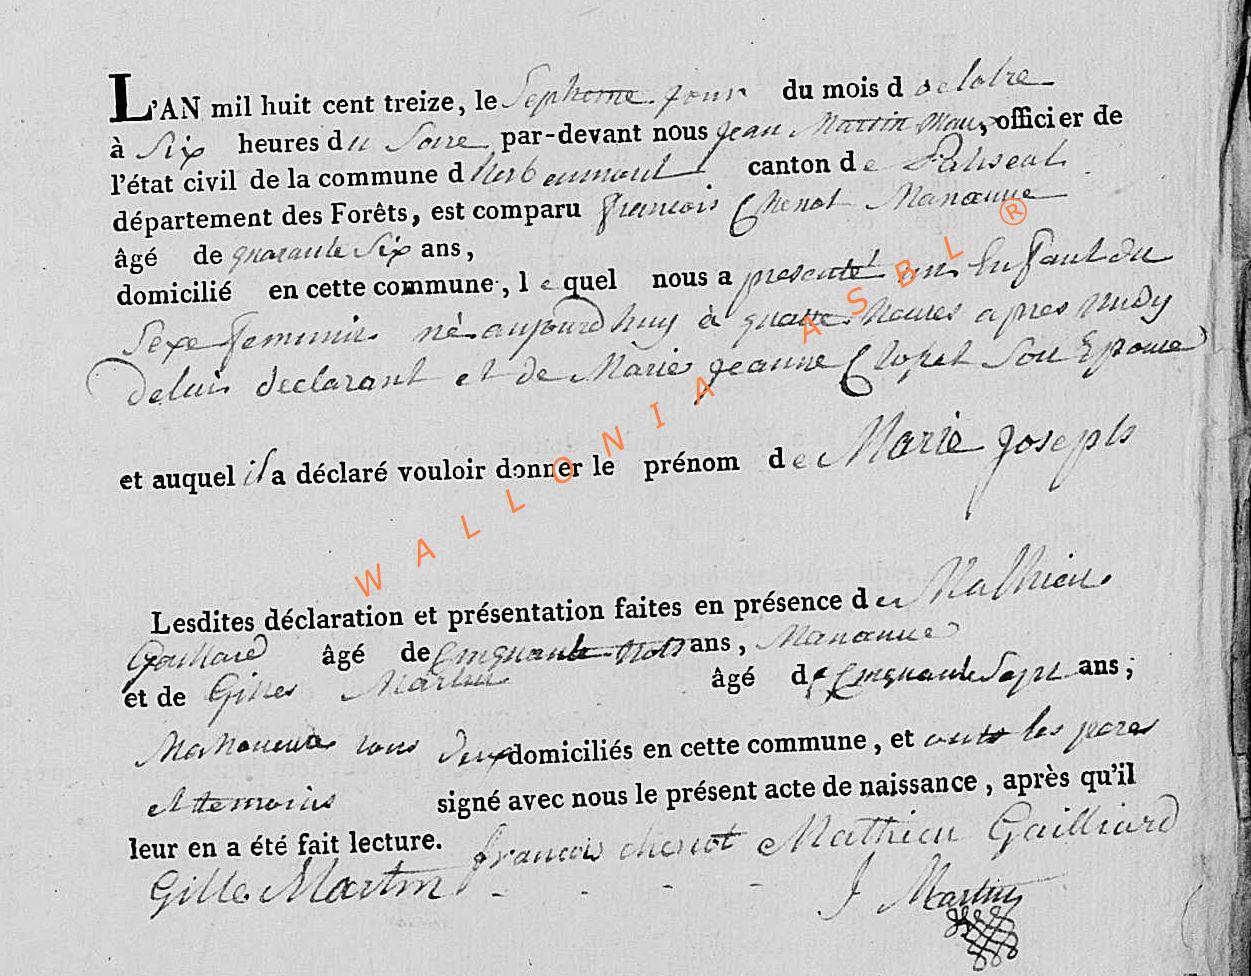 L'AN mil huit cent treize, le Septieme jour du mois d octobre
à Six heures du Soire par-devant nous Jean Martin Maire, officier de
l'état civil de la commune d herbeumont canton de Paliseul
département des Forêts, est comparu francois Chenot Manœuvre
âgé de quarante Six ans,
domicilié en cette commune, le quel nous a presenté un Enfant du
Sexe feminin né aujourd huy à quatre heures apres midy
de lui declarant et de Marie Jeanne Son Epouse
et auquel il a déclaré vouloir donner le prénom de Marie Joseph
Lesdites déclaration et présentation faites en présence de Mathieu
Gaillard âgé de Cinquante trois ans, Manœuvre
et de Gilles Martin âgé de Cinquante Sept ans;
Manoeuvre tous deux domiciliés en cette commune, et ont les peres
et temoins signé avec nous le présent acte de naissance, après qu'il
leur en a été fait lecture. francois chenot Mathieu Gailliard
Gille Martin J Martin
WALLONIA ASBL ®